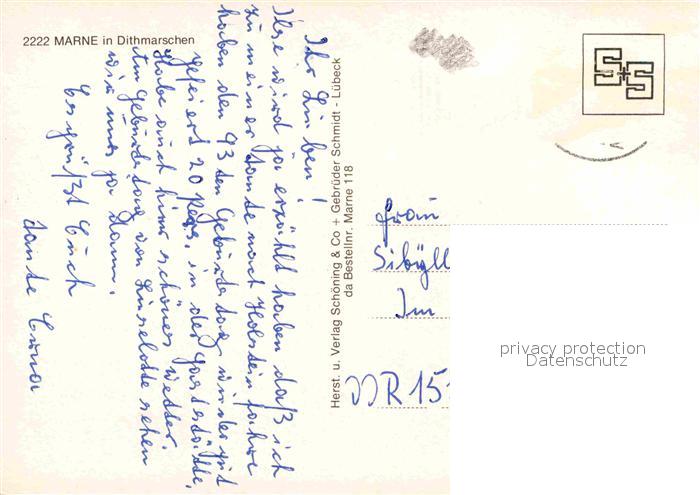 2222 MARNE in Dithmarschen
Ihr Lieben!
Ilse wird ja erzählt haben daß ich
zu meiner Tante nach Holstein fahre
haben den 93 ten Geburtstag wieder gut
gefeiert 20 Pers. in der Gaststätte,
Habe auch hier schönes Wetter.
Am Geburtstag von Liselotte sehen
wir uns ja dann.
Es grüßt Euch
Tante Erna
Herst. u. Verlag Schöning & Co + Gebrüder Schmidt - Lübeck
da Bestellnr. Marne 118
S+S
Frau
Sibyll
Im
DDR 15
privacy protection
Datenschutz